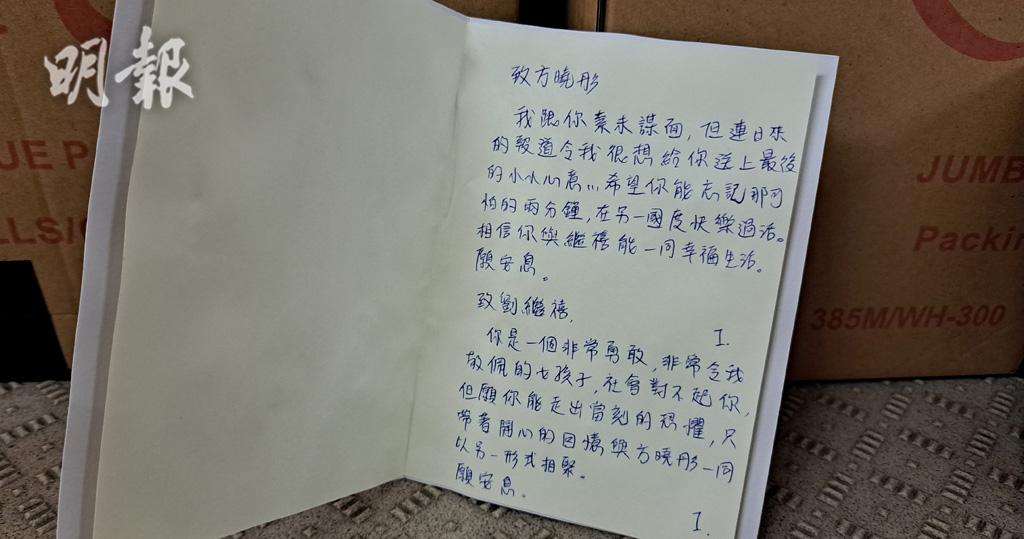 明報
致方曉彤
我跟你素未謀面, 但連日來
的報道令我很想給你送上最後
的小小心意... 希望你能忘記那可
怕的兩分鐘, 在另一國度快樂過活。
相信你與繼禧能一同幸福生活。
願安息。
I.
致劉繼禧,
你是一個非常勇敢, 非常令我
敬佩的女孩子, 社會對不起你,
但願你能走出當刻的恐懼, 只
帶着開心的回憶與方曉彤一同
以另一形式相聚。
願安息。
I.
UE P
LLS/C
JUMB
Packin
385M/WH-300